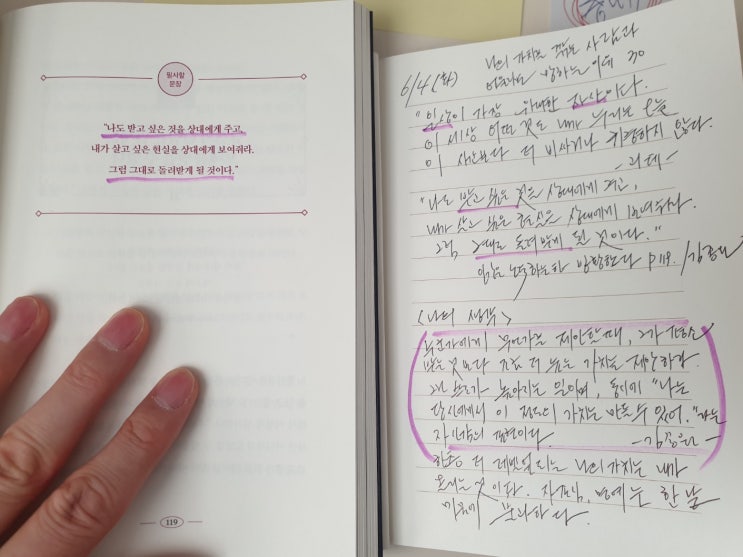 필사할
문장
"나도 받고 싶은 것을 상대에게 주고,
내가 살고 싶은 현실을 상대에게 보여줘라.
그럼 그대로 돌려받게 될 것이다."
119
6/4 (화)
나의 가치는 사람과
어울리는 30
"일상이 가장 위대한 자산이다.
이 세상 어떤 것도 내가 누리는 오늘
이 보다 더 비싸거나 귀중하지 않다.
- 괴테 -
"나도 받고 싶은 것을 상대에게 주고,
내가 살고 싶은 현실을 상대에게 보여줘라
그럼 그대로 돌려받게 될 것이다."
방황한다 P119. / 김종원
<나의 생각>
누군가에게 무언가를 제안할 때, 그가
받는 것보다 조금 더 높은 가치를 제안하라.
높아지는 일이며, 동시에 "나는
당신에게서 이 정도의 가치는 만들 수 있어."라는
자신감의 표현이다.
- 김종원 -
한층 더 나의 가치는 내가
것이다. 자존심, 명예는 한낱
불과하다.